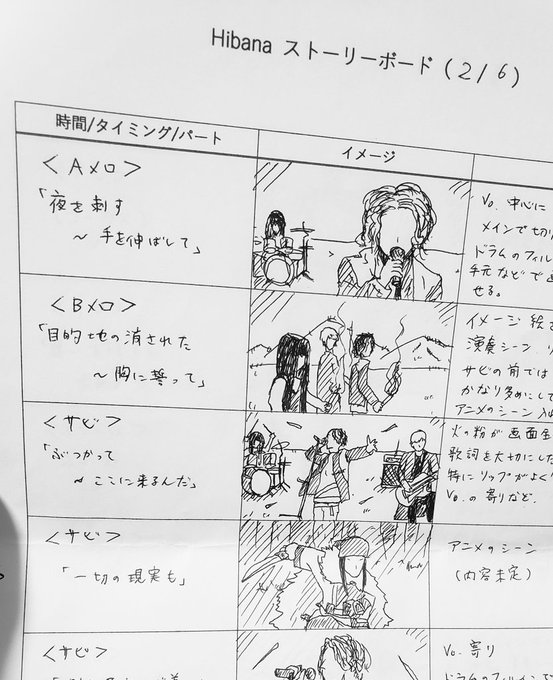 Hibana ストーリーボード(2/6)
時間/タイミング/パート
イメージ
<Aメロ>
「夜を刺す
~ 手を伸ばして」
Vo. 中心に
メインで切り
ドラムのフィル
手元などで
せる。
<Bメロ>
「目的地の消された
~ 胸に誓って」
イメージ
演奏シーン
サビの前では
かなり多めにして
アニメのシーン
<サビ>
「ぶつかって
~ ここに来るんだ」
火の粉が画面全
歌詞を大切にした
特にリップがよく
Vo. の寄りなど.
<サビ>
「一切の現実も」
アニメのシーン
(内容未定)
<サビ>
Vo. 寄り
ドラムのフィルインで